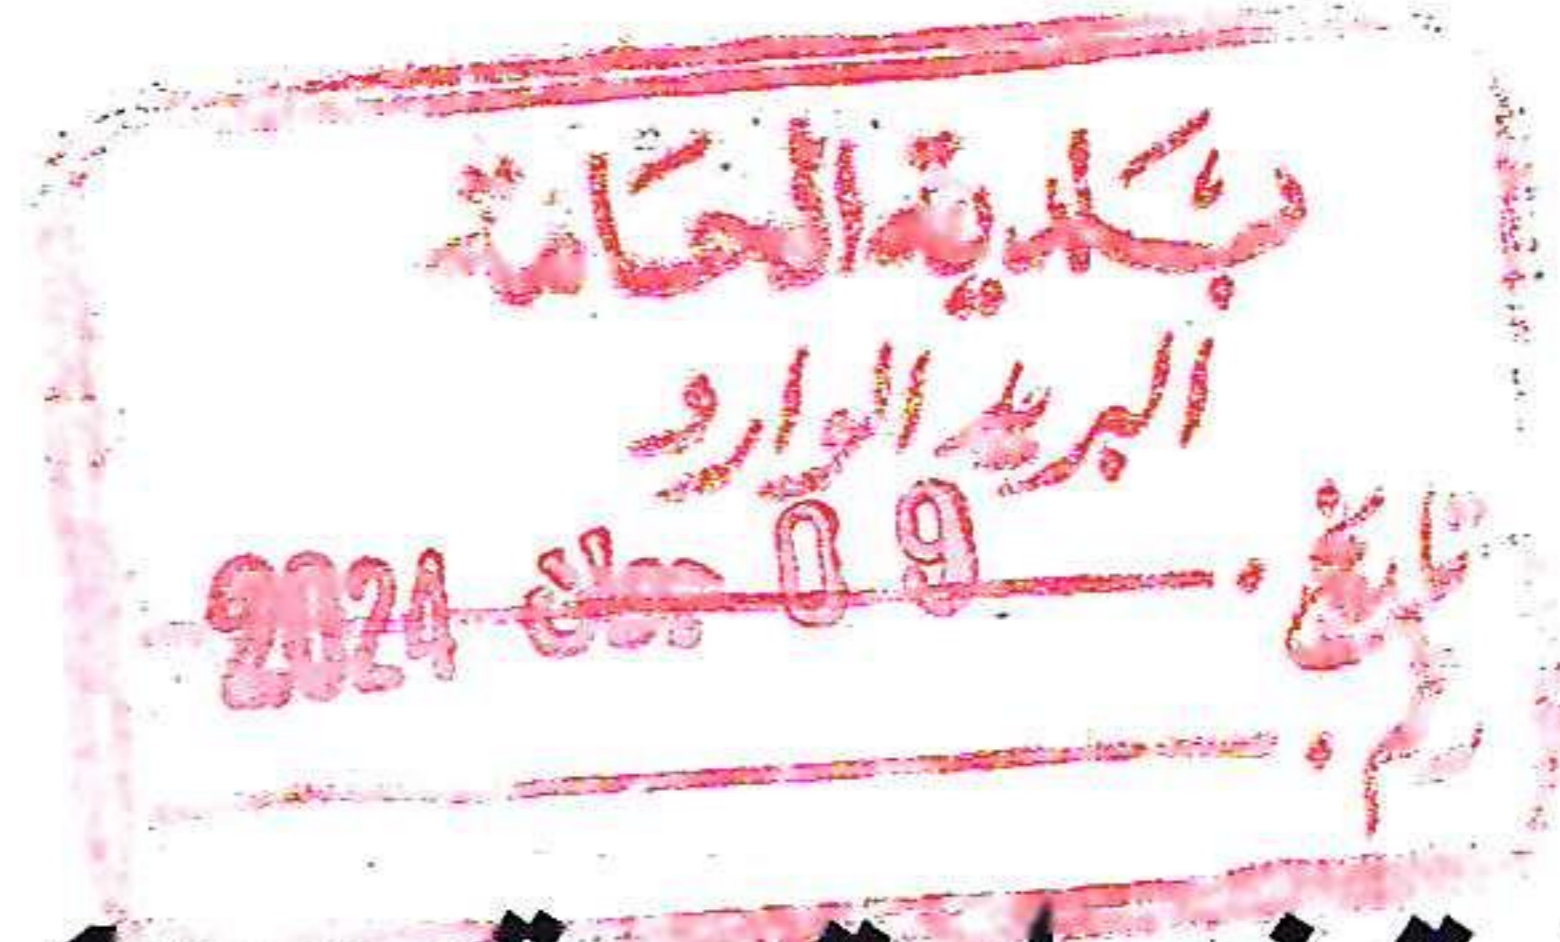 بلدية الحامة
البريد الوارد
تاريخ . 09 2024
رقم .